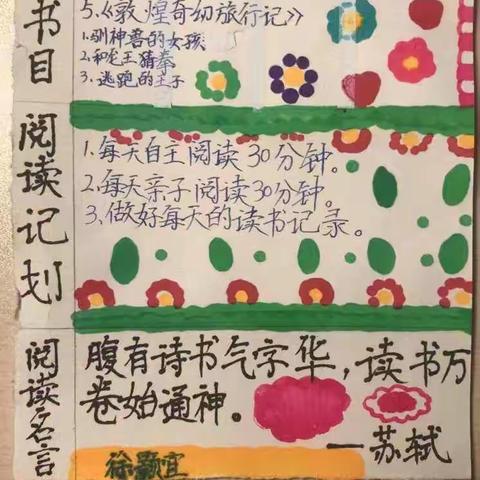 书目
5.《敦煌奇幻旅行记》
1.驯神兽的女孩
2.和龙王猜拳
3.逃跑的王子
阅读记划
1.每天自主阅读30分钟。
2.每天亲子阅读30分钟。
3.做好每天的读书记录。
阅读名言
腹有诗书气字华，读书万
卷始通神。
—苏轼
徐颢宜